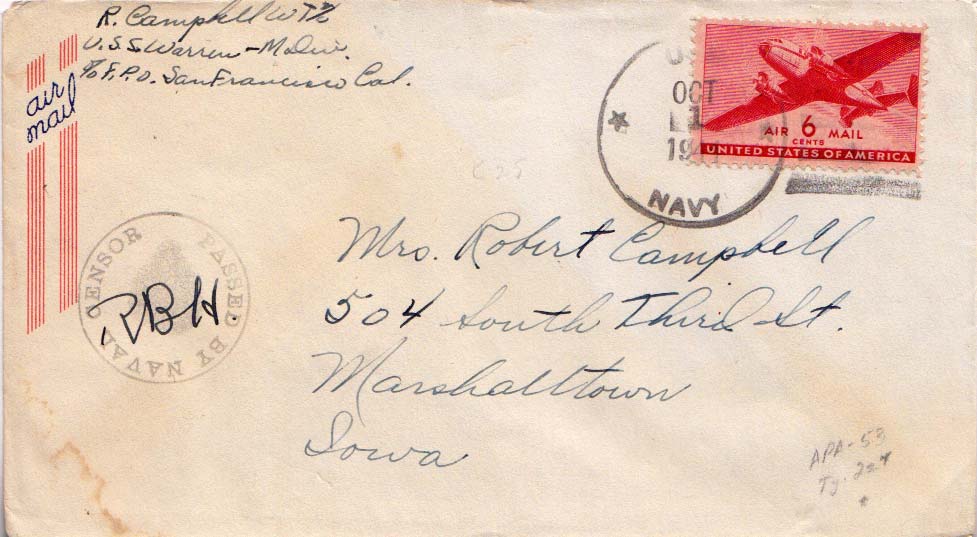 R. Campbell WT 2/c
U.S.S. Warren - M. Div.
c/o F.P.O. San Francisco Cal.
air
mail
OCT
1
NAVY
AIR 6 MAIL
CENTS
UNITED STATES OF AMERICA
PASSED BY NAVAL CENSOR
RBH.
Mrs. Robert Campbell
504 South Third St.
Marshalltown
Iowa
APA-53